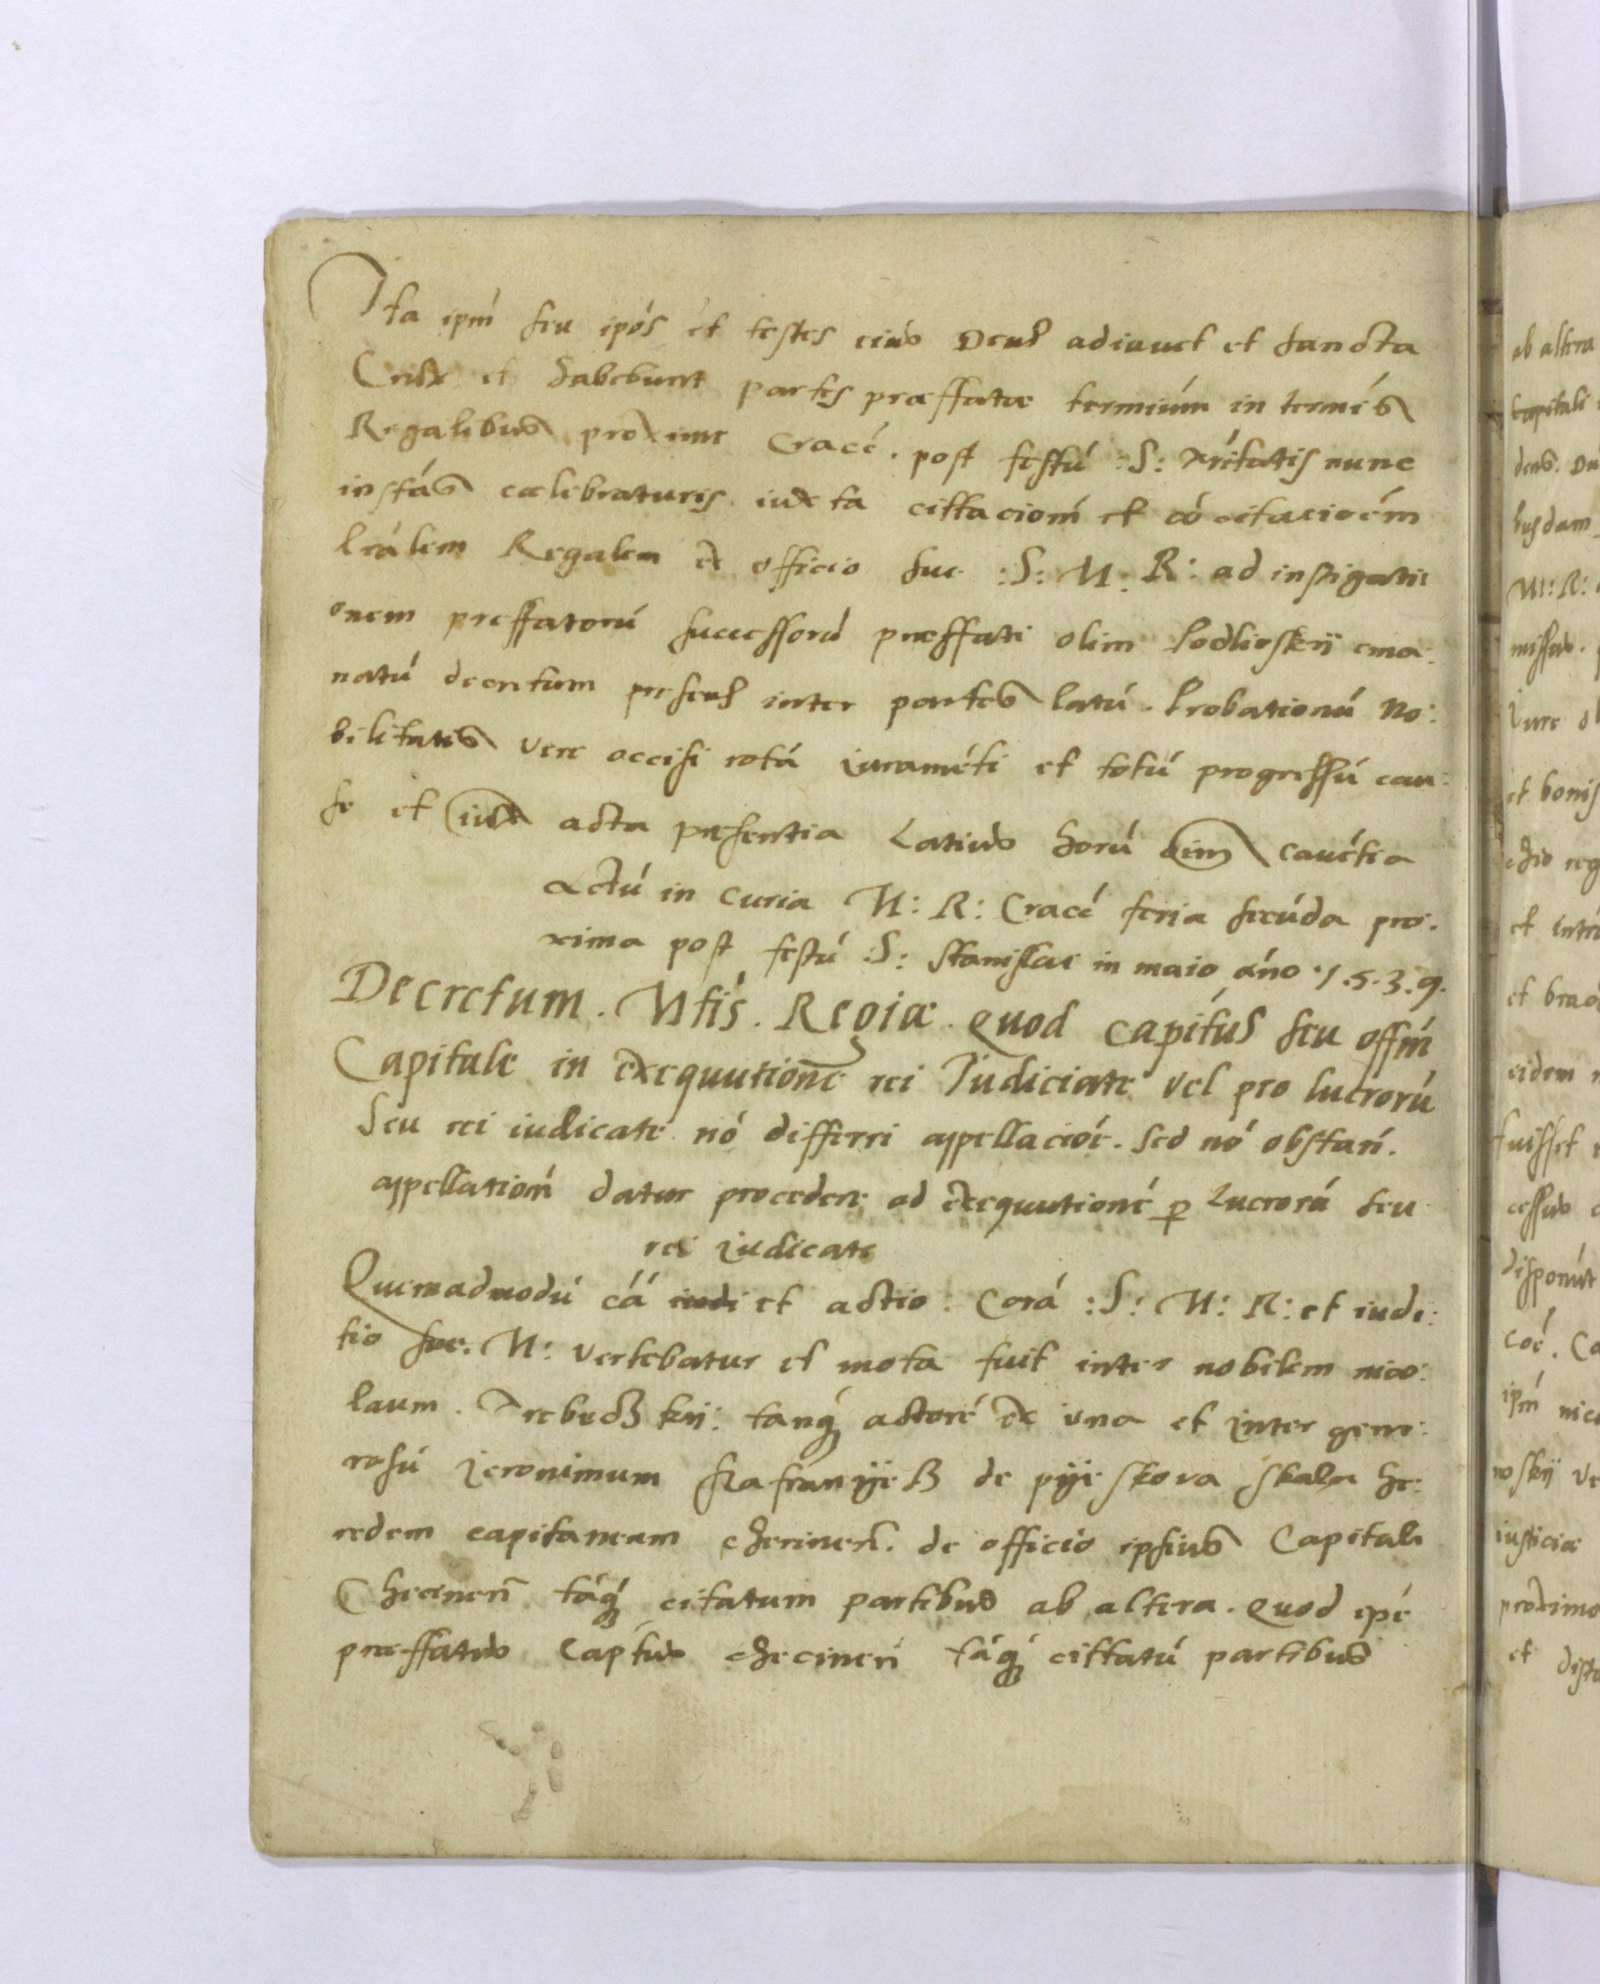 Ita ipm̄ seu ipós et testes eius Deus adiuvet et sancta
Crux et habebunt partes præffatæ terminúm in termĩs
Regalibus proxime Cracé. post festú :S: Trĩtatis nunc
instás cælebraturis iuxta cittacioné et có citacioém
lrálem Regalem ex officio sue :S: M: R: ad instigati
onem præffatorú successorú præffati olim Podlioskij ema:
natú decretum præsens inter partes latú. Probationú No:
bilitatis vere occisi rotá iuraméti et totú progressú cau:
se et iuxta acta præsentia Latius horú caućtia
Actú in curia M: R: Cracé feria secúda pro:
xima post festú :S: Stanislai in maio áno 1.5.3.9.
Decretum. Mtis. Regiæ. quod capitús seu offm̄
Capitale in exequutioné rei Iudiciate vel pro lucrorú
Seu rei iudicate nó differri appellacioé. Sed nó obstań.
appellatioń datur procedere ad exequutioné p lucrorú seu
rei iudicate
Quemadmodú cá iudi et actio: Corá :S: M: R: et iudi:
tio sue. M: vertebatur et mota fuit inter nobilem nico:
laum. Trebuchß kij: tanq́ actoré ex una et inter gene:
rosú ieronimum szafranijeß de pijeskova skala he:
redem capitaneum checineń. de officio ipsius Capitali
Checineń táq́ citatum partibus ab altera. quod ipé
præffatus captus checineń táq́ cittatú partibus
ab altera
capitali
busdam
M: R:
missus.
iure
et bonis
et
eidem
fuisset
cessus
disponút
ipm̄ nico
iusticiæ
proximo
et